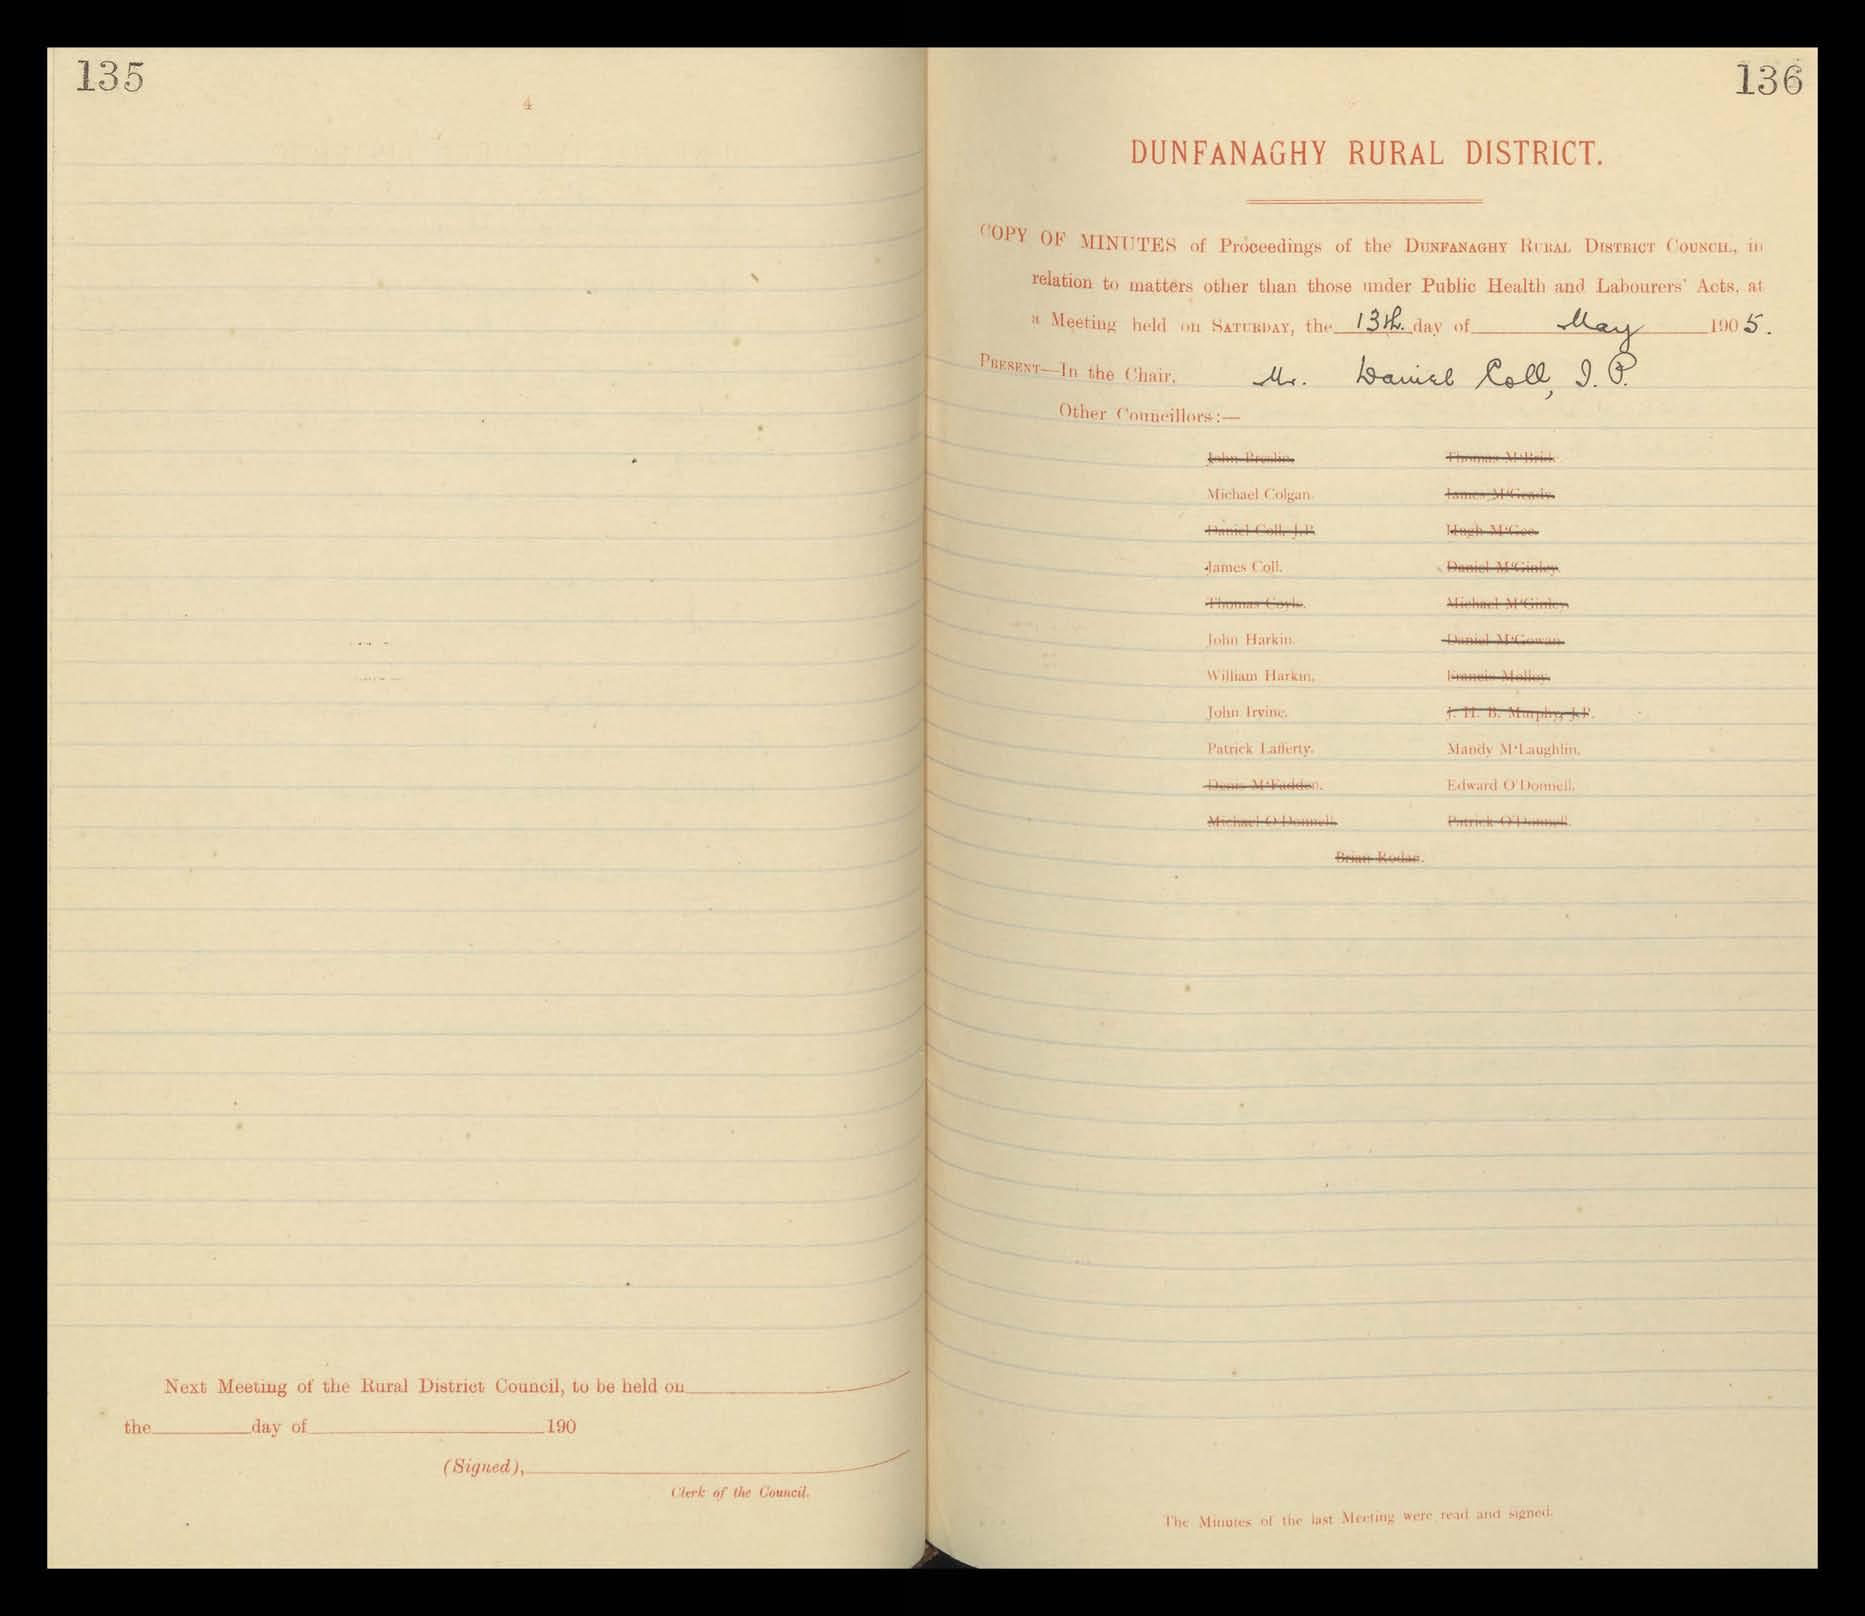 135
4
Next Meeting of the Rural District Council, to be held on
the day of 190
(Signed),
Clerk of the Council.
136
DUNFANAGHY RURAL DISTRICT.
COPY OF MINUTES of Proceedings of the DUNFANAGHY RURAL DISTRICT COUNCIL, in
relation to matters other than those under Public Health and Labourers' Acts, at
a Meeting held on SATURDAY, the 13th. day of May 1905.
PRESENT—In the Chair, Mr. Daniel Coll, J.P.
Other Councillors:—
John Breslin. Thomas M'Brid.
Michael Colgan. James M'Geady.
Daniel Coll, J.P. Hugh M'Gee.
James Coll. Daniel M'Ginley.
Thomas Coyle. Michael M'Ginley.
John Harkin. Daniel M'Gowan.
William Harkin. Francis Molloy.
John Irvine. J. H. B. Murphy, J.P.
Patrick Lafferty. Mandy M'Laughlin.
Denis M'Fadden. Edward O'Donnell.
Michael O'Donnell. Patrick O'Donnell.
Brian Rodae.
The Minutes of the last Meeting were read and signed.